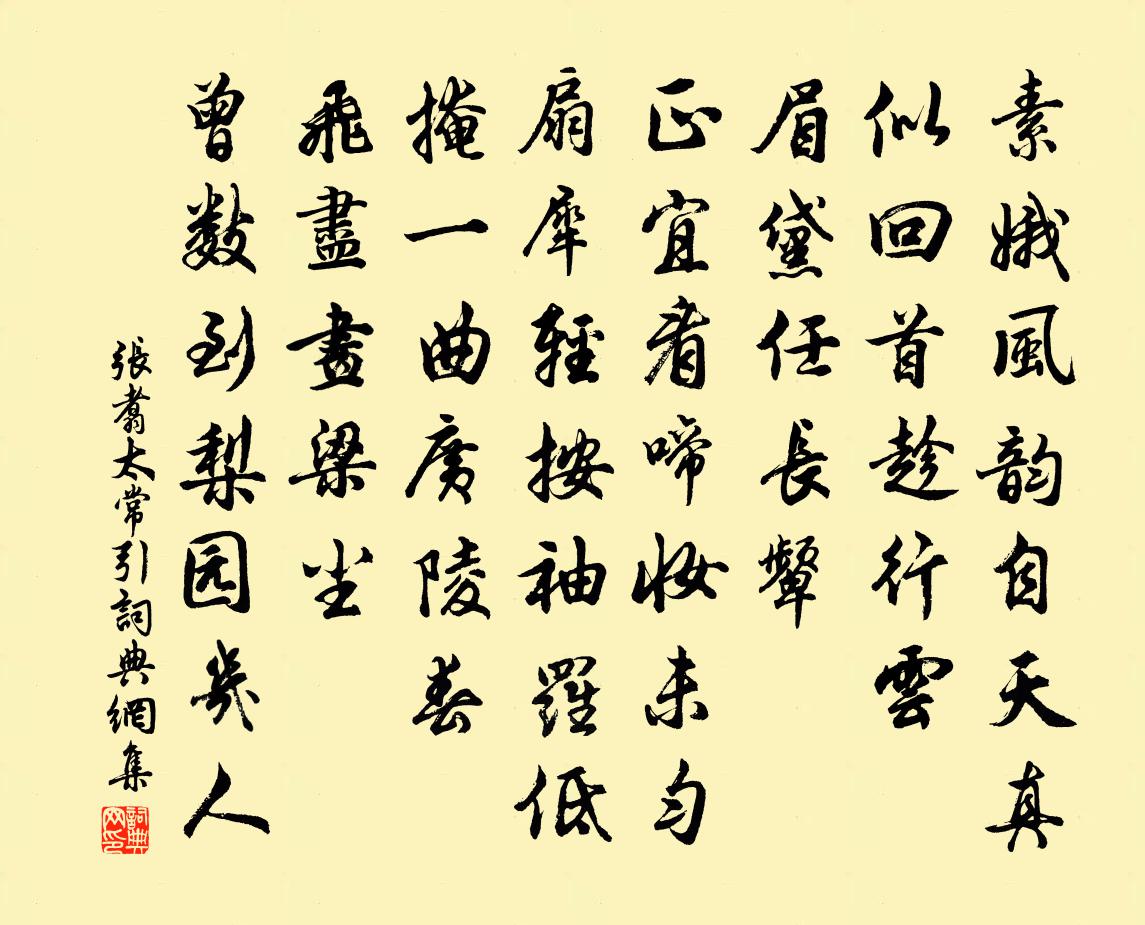 素娥風韵自天真
似回首趁行雲
眉黛任長顰
正宜看啼妝未匀
扇犀輕按袖羅低
掩一曲廣陵春
飛盡畫梁尘
曾数到梨园幾人
張翥太常引詞典網集
詞典网印